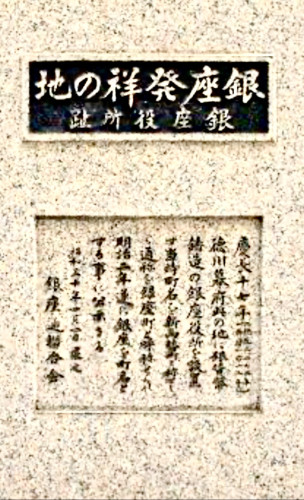 銀座発祥の地
銀座役所趾
慶長十七年
徳川幕府此の地に銀貨幣
鋳造の銀座役所を設置
す当時町名を新両替町と称
通称を銀座町と
明治二年遂に銀座を町名と
する事に公示さる
昭和三十年四月一日建之
銀座通聯合会